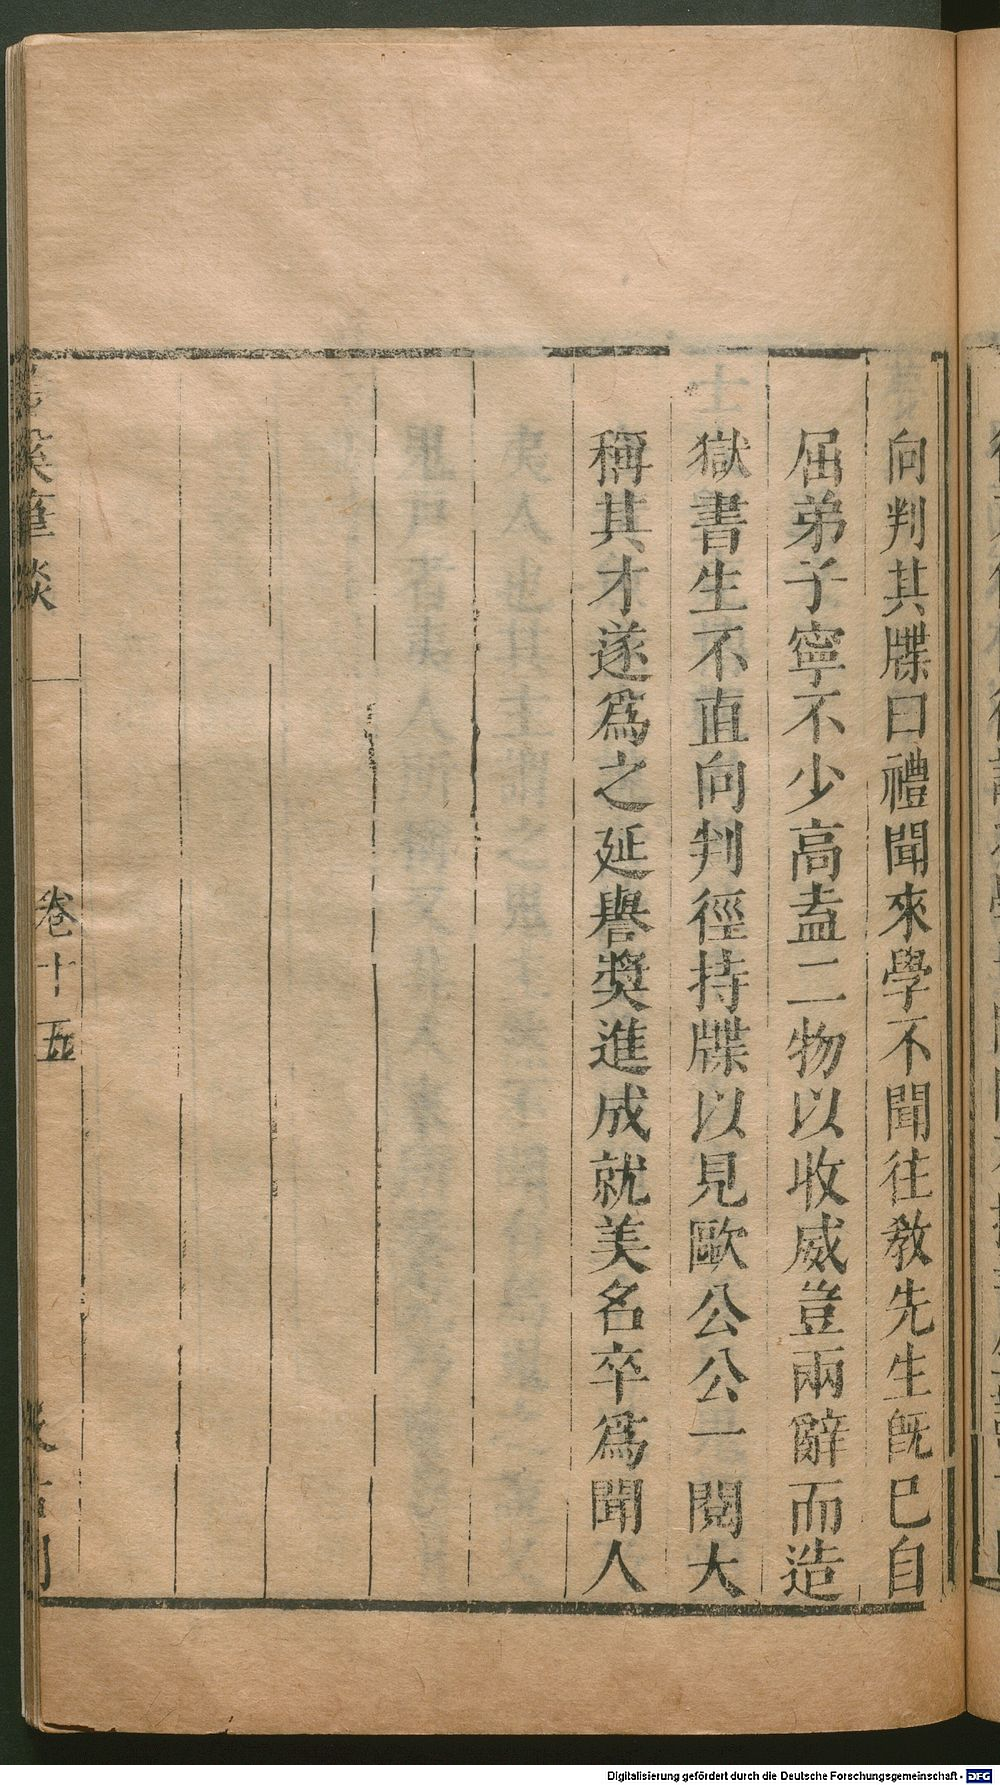 向判其牒曰禮聞來學不聞往敎先生旣巳自
屈弟子寧不少高盍二物以收威豈兩辭而造
獄書生不直向判徑持牒以見歐公公一閱大
稱其才遂爲之延譽獎進成就美名卒爲聞人
溪筆談
卷十五
Digitalisierung gefördert durch die Deutsche Forschungsgemeinschaft - DFG